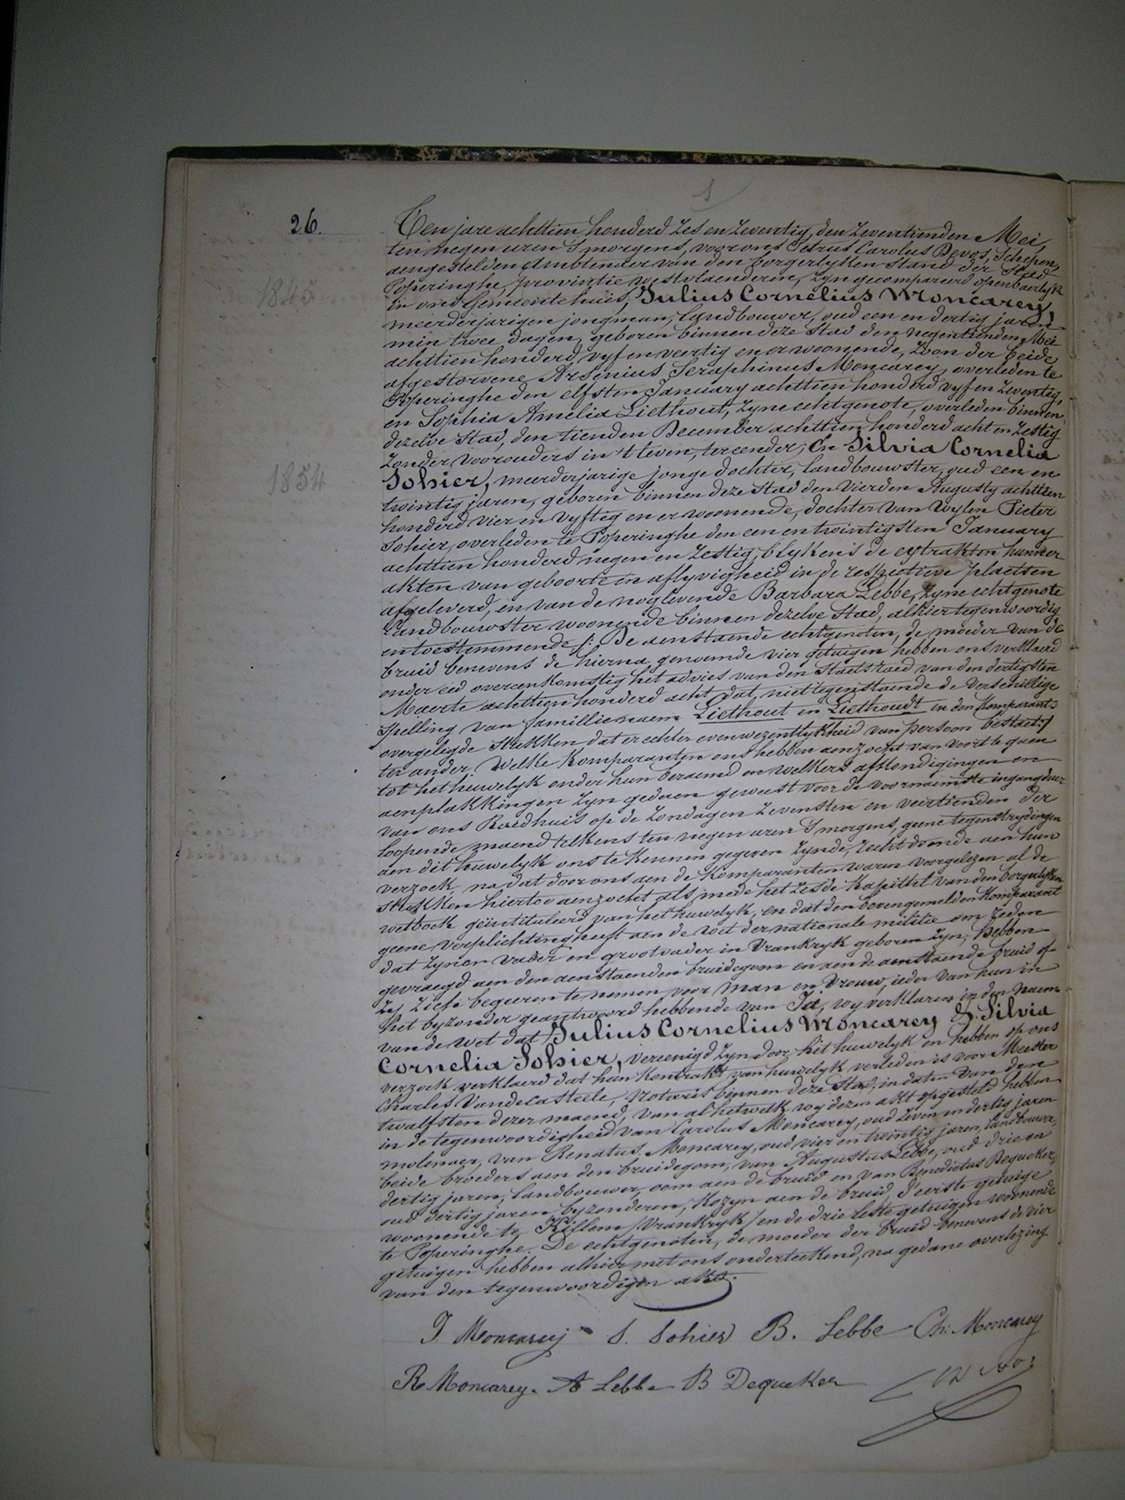 1
26.
Ten jare achttien honderd zes en zeventig, den zeventienden Mei,
ten negen uren 's morgens, voor ons Petrus Carolus Devos, Schepen,
aengestelden Ambtenaer van den borgerlyken stand der Stad
Poperinghe, provintie westvlaenderen, zyn gecompareerd openbaerlyk
1845
in ons Gemeentehuis, Julius Cornelius Moncarey,
meerderjarigen jongman, landbouwer, oud een en dertig jaren
min twee dagen, geboren binnen deze stad den negentienden Mei
achttien honderd vyf en veertig en er woonende, zoon der beide
afgestorvene Arsenius Seraphinus Moncarey, overleden te
Poperinghe den elfsten January achttien honderd vyf en zeventig,
en Sophia Amelia Liethout, zyne echtgenote, overleden binnen
dezelve stad, den tienden December achttien honderd acht en zestig
zonder voorouders in 't leven, ter eender; En Silvia Cornelia
1854
Sohier, meerderjarige jonge dochter, landbouwster, oud een en
twintig jaren, geboren binnen deze stad den vierden Augusty achttien
honderd vier en vyftig en er woonende, dochter van wylen Pieter
Sohier, overleden te Poperinghe den een en twintigsten January
achttien honderd negen en zestig, blykens de extrakten hunner
akten van geboorte en aflyvigheid in de respective plaetsen
afgeleverd, en van de nog levende Barbara Lebbe, zyne echtgenote
landbouwster woonende binnen dezelve stad, alhier tegenwoordig
en toestemmende; De aenstaende echtgenoten, de moeder van de
bruid benevens de hierna genoemde vier getuigen hebben ons verklaerd
onder eed overeenkomstig het advies van den Staetsraed van den dertigsten
Maerte achttien honderd acht, dat, niettegenstaende de verschillige
spelling van familienaem Liethout en Liethoudt in den Komparants
overgelegde stukken dat er echter evenwezentlykheid van persoon bestaet;
ter ander. Welke Komparanten ons hebben aenzocht van voort te gaen
tot het huwelyk onder hun beraemd en welkers afkondigingen en
aenplakkingen zyn gedaen geweest voor de voornaemste ingangdeur
van ons Raedhuis op de zondagen zevensten en veertienden der
loopende maend telkens ten negen uren 's morgens, geene tegenstrydingen
aen dit huwelyk ons te kennen gegeven zynde, recht doende aen hun
verzoek, na dat door ons aen de Komparanten waren voorgelezen al de
stukken hiertoe aenzocht als mede het zesde kapittel van den borgerlyken
wetboek geïntituleerd van het huwelyk, en dat den bovengemelden Komparant
geene verplichting heeft aen de wet der nationale militie om reden
dat zynen vader en grootvader in Vrankryk geboren zyn; Hebben
gevraegd aen den aenstaenden bruidegom en aen de aenstaende bruid of
zy zich begeeren te nemen voor man en vrouw, ieder van hun in
het byzonder geantwoord hebbende van Ja, wy verklaren in den naem
van de wet dat Julius Cornelius Moncarey & Silvia
Cornelia Sohier, vereenigd zyn door hit huwelyk en hebben op ons
verzoek verklaerd dat hun kontrakt van huwelyk verleden is voor Meester
Charles Vandecasteele, Notaris binnen deze stad, in daten van den
twalfsten dezer maend; van al hetwelk wy dezen akt opgesteld hebben
in de tegenwoordigheid van Carolus Moncarey, oud zeven en dertig jaren
molenaer, van Renatus Moncarey, oud vier en twintig jaren, landbouwer,
beide broeders aen den bruidegom, van Augustus Lebbe, oud drie en
dertig jaren, landbouwer, oom aen de bruid en van Benedictus Dequeker,
oud dertig jaren, byzonderen, kozyn aen de bruid, d'eerste getuige
woonende te Killem /Vrankryk/ en de drie leste getuigen woonende
te Poperinghe. De echtgenoten, de moeder der bruid benevens de vier
getuigen hebben alhier met ons onderteekend, na gedane overlezing
van den tegenwoordigen akte.
J Moncarey S. Sohier B. Lebbe Ch. Moncarey
R Moncarey. A Lebbe B Dequeker